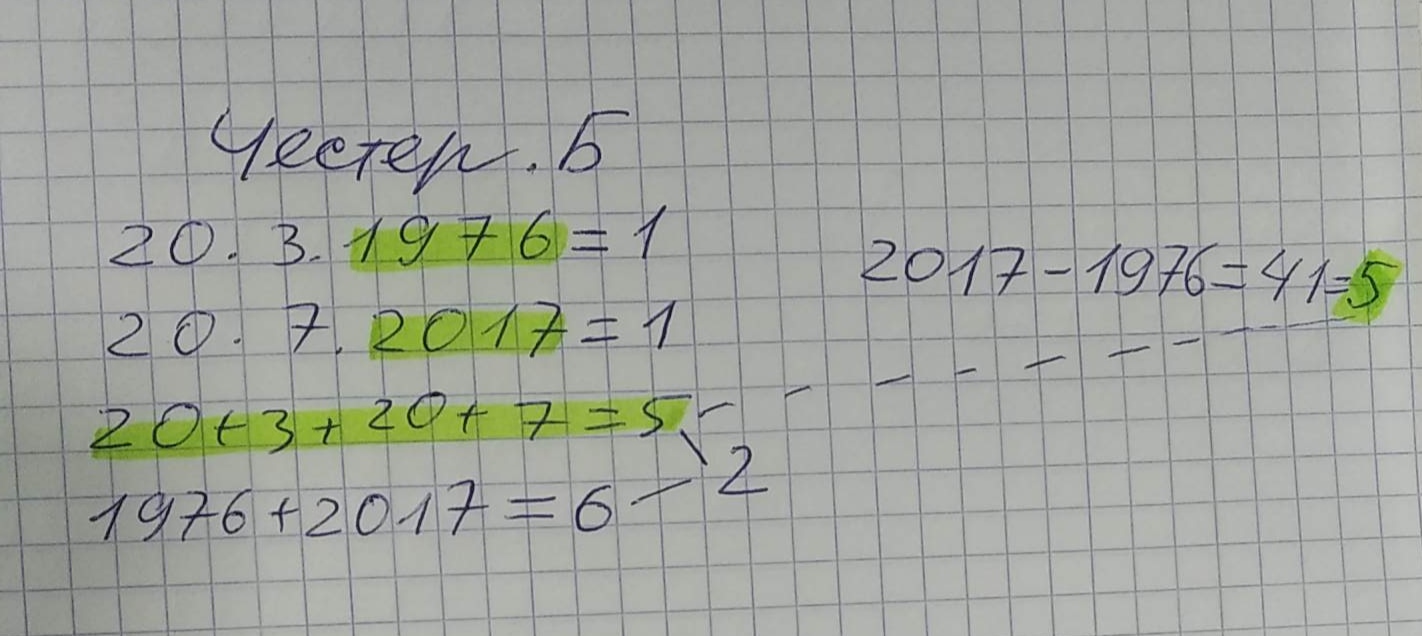 Честер. Б
20. 3. 1976 = 1
20. 7. 2017 = 1
2017 - 1976 = 41 = 5
20 + 3 + 20 + 7 = 5
2
1976 + 2017 = 6